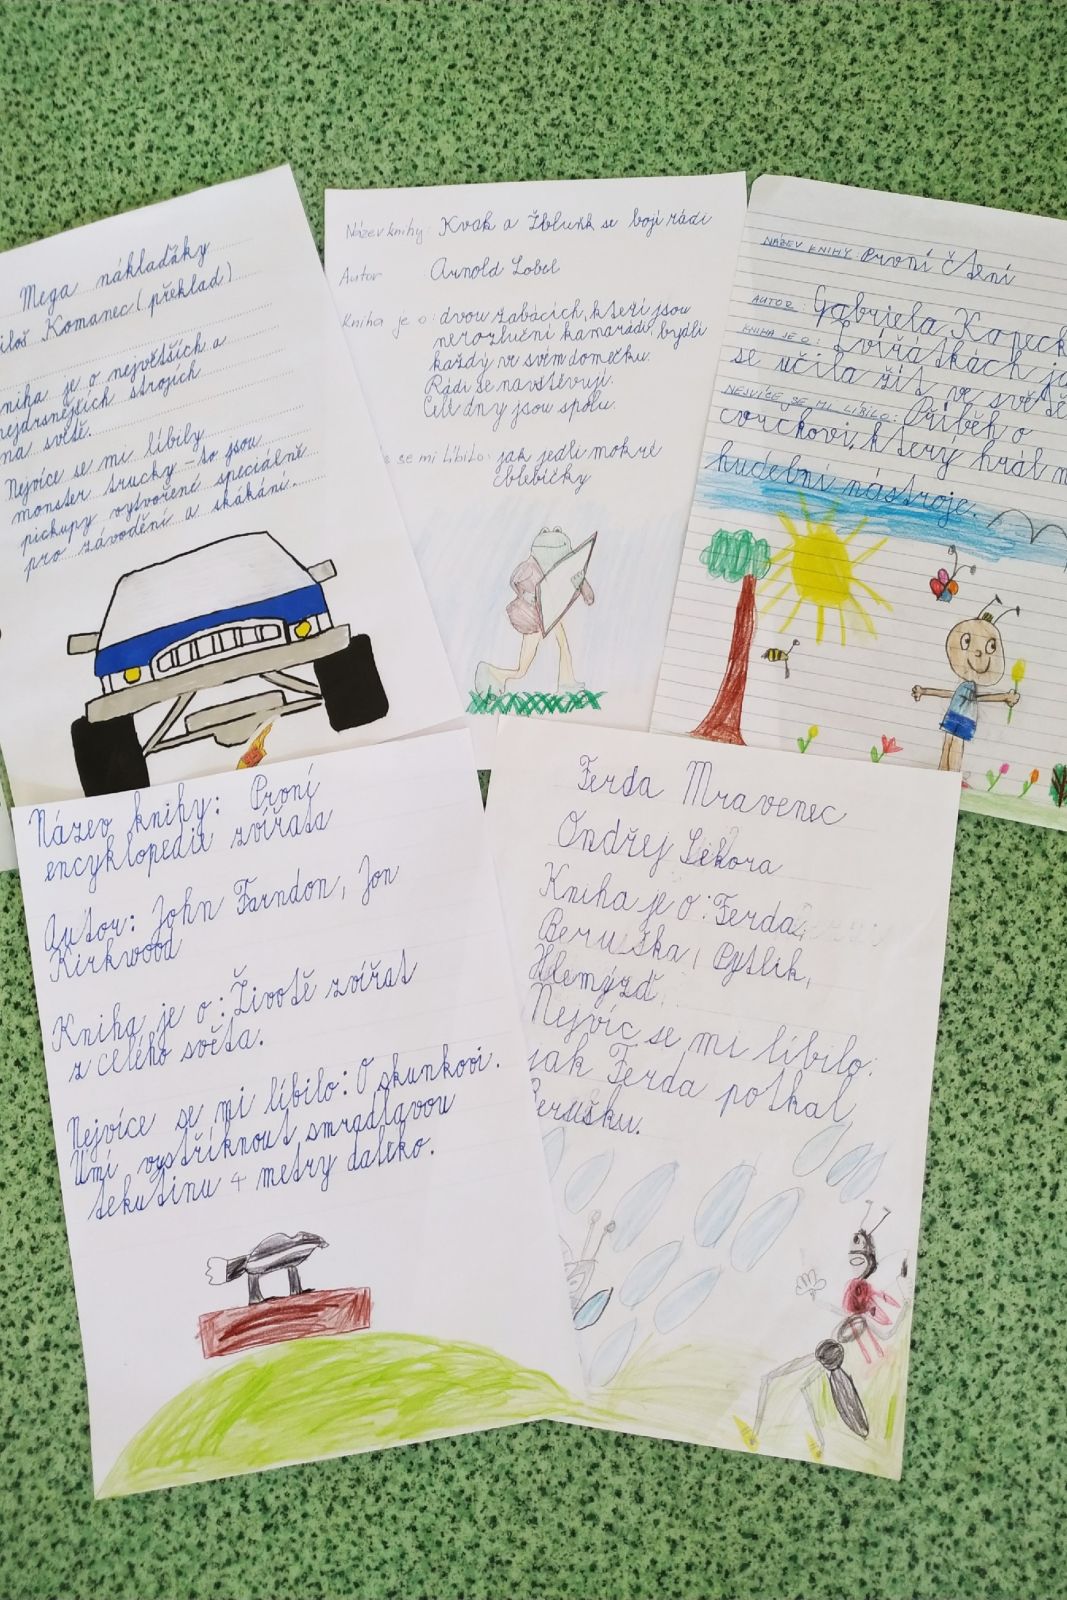 Mega náklaďáky
iloš Komanec (překlad)
niha je o největších a
nejdrsnějších strojích
na světě.
Nejvíce se mi líbily
monster trucky - to jsou
pickupy vytvořené speciálně
pro závodění a skákání.
Název knihy: Kvak a Žbluňk se bojí rádi
Autor Arnold Lobel
Kniha je o: dvou žabácích, kteří jsou
nerozluční kamarádi, bydlí
každý ve svém domečku.
Rádi se navštěvují.
Celé dny jsou spolu.
se mi líbilo: jak jedli mokré
chlebíčky
NÁZEV KNIHY: První čtení
AUTOR: Gabriela Kopeck
KNIHA JE O: Zvířátkách ja
se učila žít ve světě
NEJVÍCE SE MI LÍBILO: Příběh o
cvrčkovi, který hrál n
hudební nástroje.
Název knihy: První
encyklopedie zvířata
Autor: John Farndon, Jon
Kirkwood
Kniha je o: Životě zvířat
z celého světa.
Nejvíce se mi líbilo: O skunkovi.
Umí vystříknout smradlavou
tekutinu 4 metry daleko.
Ferda Mravenec
Ondřej Sekora
Kniha je o: Ferda,
Beruška, Pytlík,
Hlemýžď.
Nejvíc se mi líbilo:
jak Ferda potkal
Berušku.